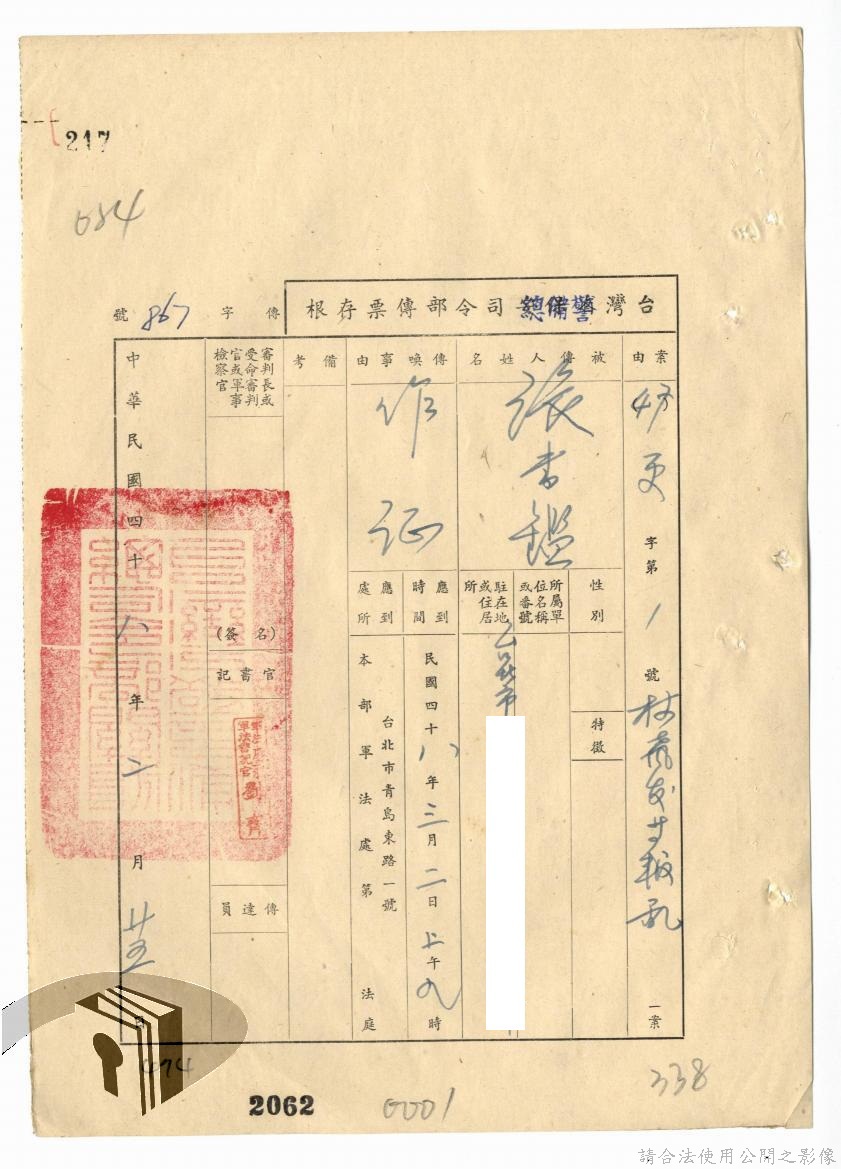 217
084
台灣警備總司令部傳票存根
傳字 867 號
案由
47 更字第 1 號
叛亂
一案
被傳人姓名
張書鑑
性別
特徵
所屬單位名稱或番號
駐在地或住居所
傳喚事由
作証
應到時間
民國四十八年三月二日上午九時
應到處所
台北市青島東路一號
本部軍法處第 法庭
備考
審判長或受命審判官或軍事檢察官
(簽名)
書記官
傳達員
中華民國四十八年二月廿五日
074
2062
0001
338
請合法使用公開之影像